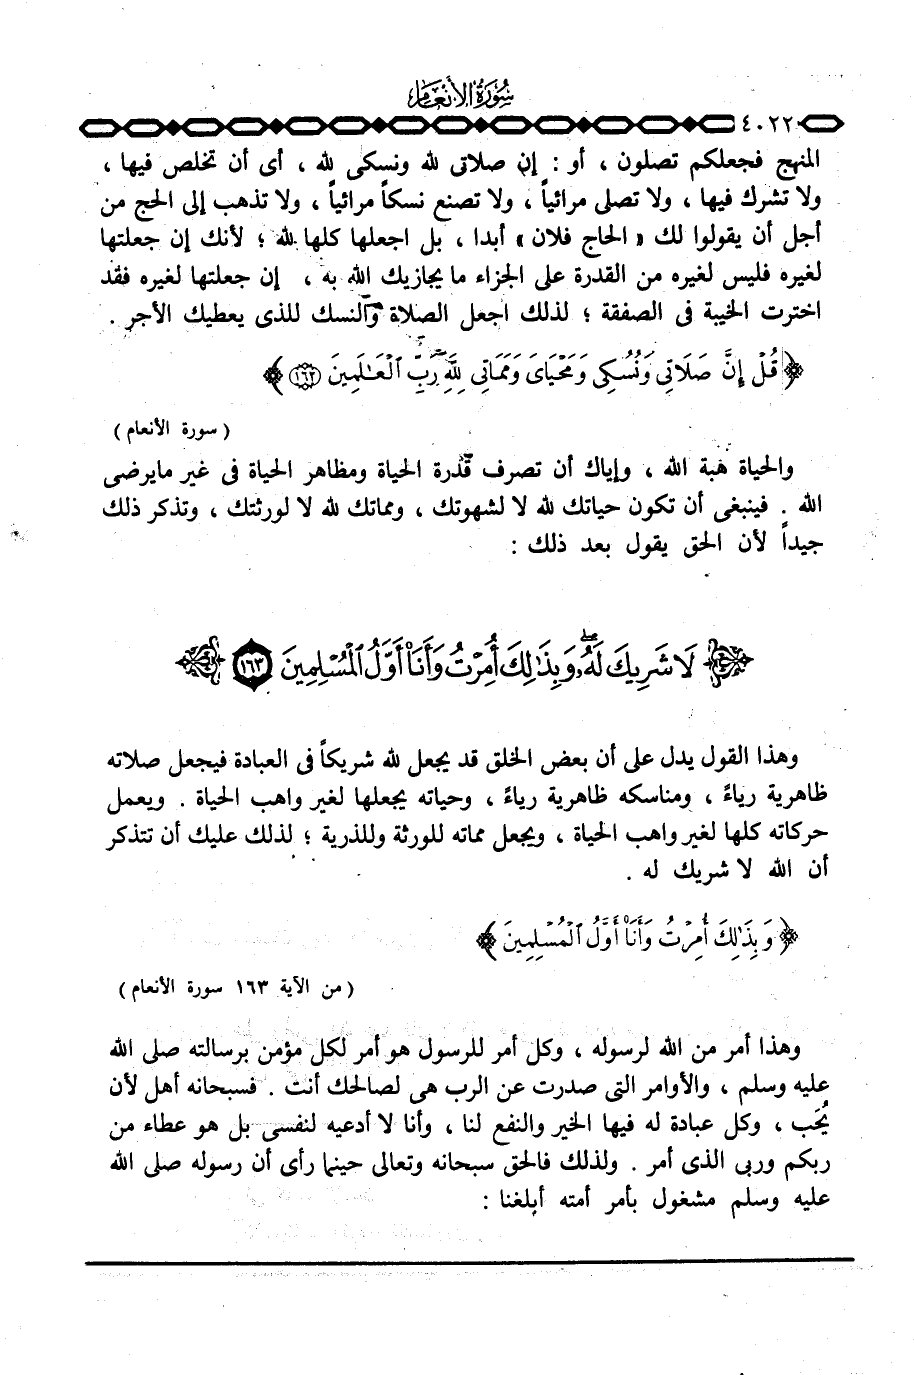 سُورَةُ الأَنعَام
٤٠٢٢
المنهج فجعلكم تصلون ، أو : إن صلاتى لله ونسكى لله ، أى أن تخلص فيها ،
ولا تشرك فيها ، ولا تصلى مرائياً ، ولا تصنع نسكاً مرائياً ، ولا تذهب إلى الحج من
أجل أن يقولوا لك « الحاج فلان » أبدا ، بل اجعلها كلها لله ؛ لأنك إن جعلتها
لغيره فليس لغيره من القدرة على الجزاء ما يجازيك الله به ، إن جعلتها لغيره فقد
اخترت الخيبة فى الصفقة ؛ لذلك اجعل الصلاة والنسك للذى يعطيك الأجر .
﴿ قُلْ إِنَّ صَلَاتِي وَنُسُكِي وَمَحْيَايَ وَمَمَاتِي لِلَّهِ رَبِّ ٱلْعَـٰلَمِينَ ١٦٢ ﴾
( سورة الأنعام )
والحياة هبة الله ، وإياك أن تصرف قدرة الحياة ومظاهر الحياة فى غير مايرضى
الله . فينبغى أن تكون حياتك لله لا لشهوتك ، ومماتك لله لا لورثتك ، وتذكر ذلك
جيداً لأن الحق يقول بعد ذلك :
﴿ لَا شَرِيكَ لَهُۥ وَبِذَٰلِكَ أُمِرْتُ وَأَنَا۠ أَوَّلُ ٱلْمُسْلِمِينَ ١٦٣ ﴾
وهذا القول يدل على أن بعض الخلق قد يجعل لله شريكاً فى العبادة فيجعل صلاته
ظاهرية رياءً ، ومناسكه ظاهرية رياءً ، وحياته يجعلها لغير واهب الحياة . ويعمل
حركاته كلها لغير واهب الحياة ، ويجعل مماته للورثة وللذرية ؛ لذلك عليك أن تتذكر
أن الله لا شريك له .
﴿ وَبِذَٰلِكَ أُمِرْتُ وَأَنَا۠ أَوَّلُ ٱلْمُسْلِمِينَ ﴾
( من الآية ١٦٣ سورة الأنعام )
وهذا أمر من الله لرسوله ، وكل أمر للرسول هو أمر لكل مؤمن برسالته صلى الله
عليه وسلم ، والأوامر التى صدرت عن الرب هى لصالحك أنت . فسبحانه أهل لأن
يُحَب ، وكل عبادة له فيها الخير والنفع لنا ، وأنا لا أدعيه لنفسى بل هو عطاء من
ربكم وربى الذى أمر . ولذلك فالحق سبحانه وتعالى حينما رأى أن رسوله صلى الله
عليه وسلم مشغول بأمر أمته أبلغنا :